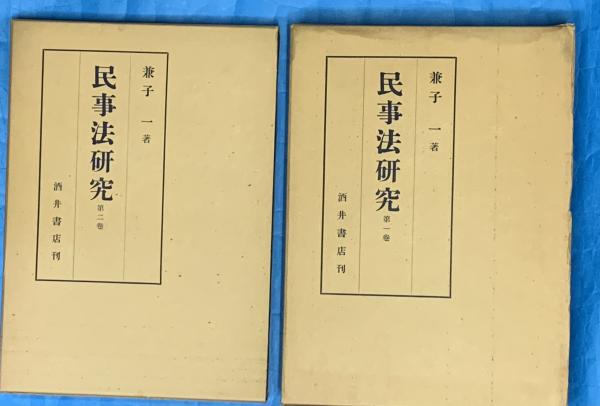 兼子 一 著
民事法研究 第二巻
酒井書店刊
兼子 一 著
民事法研究 第一巻
酒井書店刊